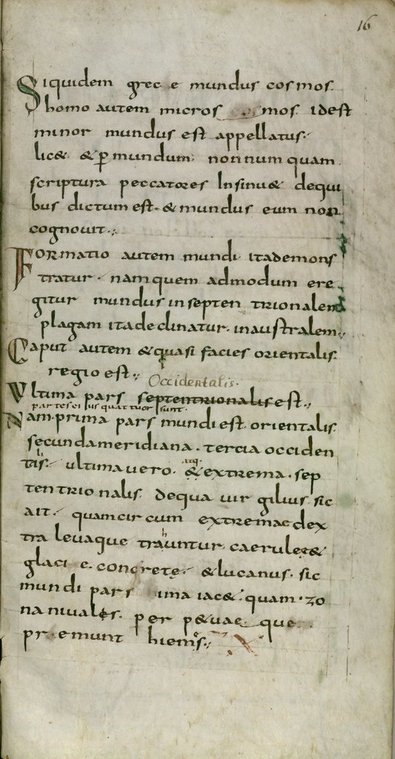 16
Siquidem grece mundus cosmos
homo autem micros mos. idest
minor mundus est appellatus.
lic& & p mundum. nonnumquam
scriptura peccatores Insinu& dequi
bus dictum est. & mundus eum non
cognouit.
Formatio autem mundi itademons
tratur. namquem admodum ere
gitur mundus inseptentrionalem
plagam itadeclinatur. inaustralem.
Caput autem & quasi facies orientalis
regio est.
Occidentalis.
Vltima pars septentrionalis est.
partes ei quattuor sunt
Nam prima pars mundi est. orientalis
secunda meridiana. tercia occiden
tis. ultima uero. & extrema. sep
tentrionalis. dequa uirgilius sic
ait. quamcircum extremae dex
tra leuaque trauntur. caeruleę &
glacie. concretę. & lucanus. sic
mundi pars ima iac& quam. zo
na niualęs. perp&uae que
premunt hiems.